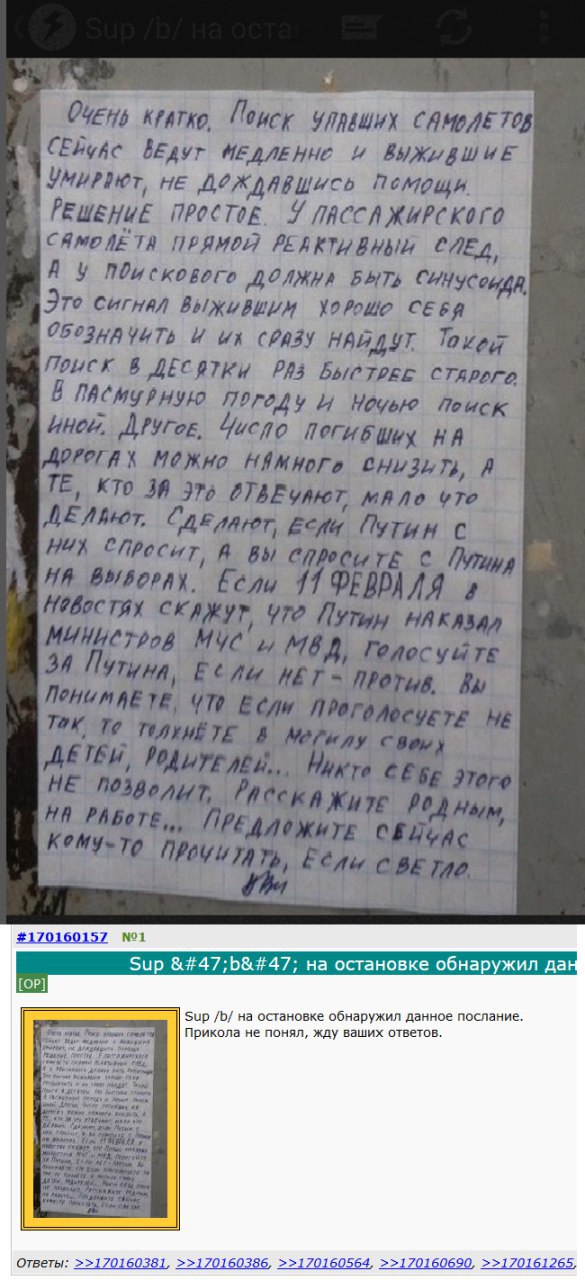 Sup /b/ на оста
Очень кратко. Поиск упавших самолетов
сейчас ведут медленно и выжившие
умирают, не дождавшись помощи.
Решение простое. У пассажирского
самолёта прямой реактивный след,
а у поискового должна быть синусоида.
Это сигнал выжившим хорошо себя
обозначить и их сразу найдут. Такой
поиск в десятки раз быстрее старого.
В пасмурную погоду и ночью поиск
иной. Другое. Число погибших на
дорогах можно намного снизить, а
те, кто за это отвечают, мало что
делают. Сделают, если Путин с
них спросит, а вы спросите с Путина
на выборах. Если 11 февраля в
новостях скажут, что Путин наказал
министров МЧС и МВД, голосуйте
за Путина, если нет - против. Вы
понимаете, что если проголосуете не
так, то толкнёте в могилу своих
детей, родителей... Никто себе этого
не позволит. Расскажите родным,
на работе... Предложите сейчас
кому-то прочитать, если светло.
#170160157 №1
Sup &#47;b&#47; на остановке обнаружил дан
[OP]
Sup /b/ на остановке обнаружил данное послание.
Прикола не понял, жду ваших ответов.
Ответы: >>170160381, >>170160386, >>170160564, >>170160690, >>170161265,